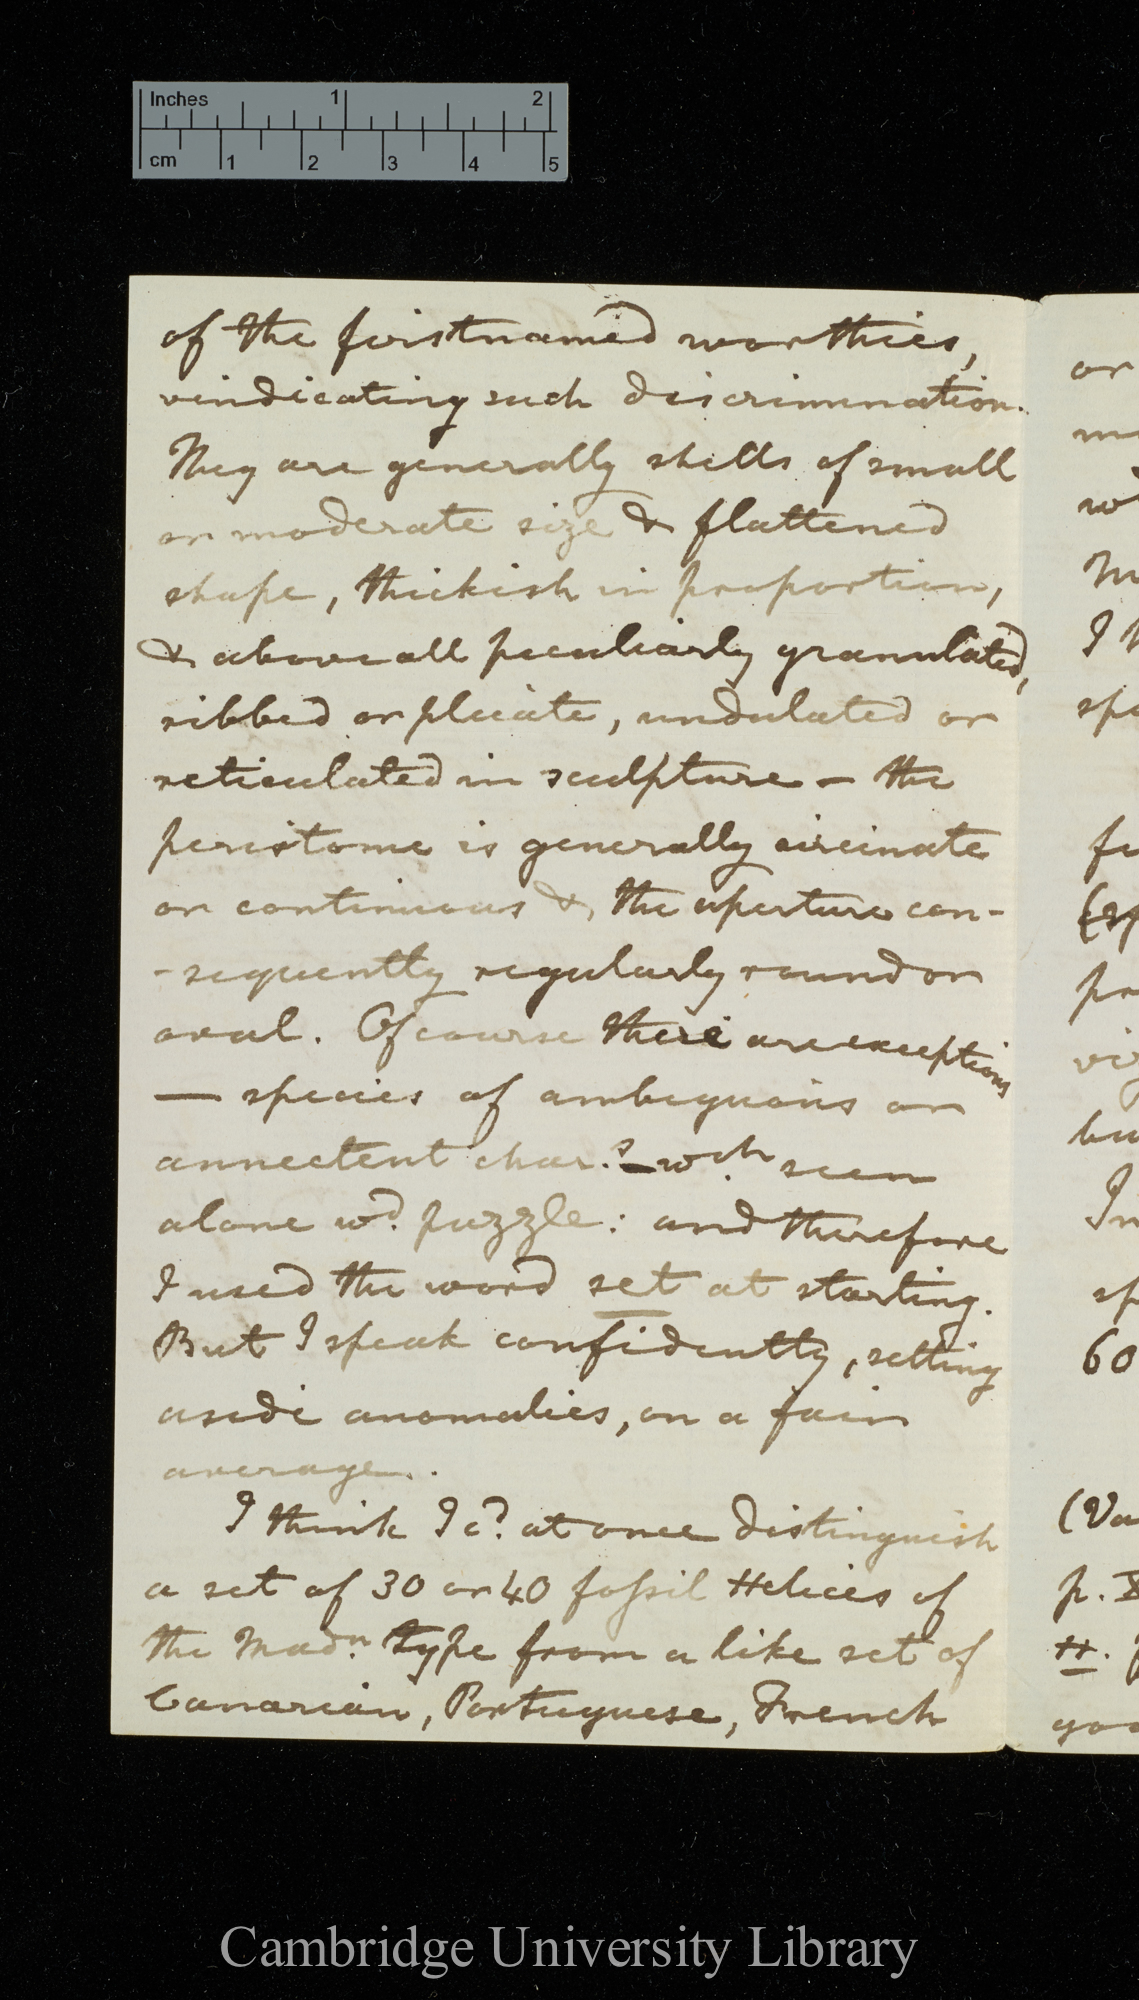 Inches 1 2
cm 1 2 3 4 5
of the firstnamed worthies,
vindicating such discrimination.
They are generally shells of small
or moderate size & flattened
shape, thickish in proportion,
& above all peculiarly granulated,
ribbed or plicate, undulated or
reticulated in sculpture – the
peristome is generally circinate
or continuous & the aperture con-
-sequently regularly round or
oval. Of course there are exceptions
— species of ambiguous or
annectent char.s – wch. seen
alone wd. puzzle: and therefore
I used the word set at starting.
But I speak confidently, setting
aside anomalies, on a fair
average.
I think I cd. at once distinguish
a set of 30 or 40 fossil Helices of
the Madn. type from a like set of
Canarian, Portuguese, French
or
w
M
I
spe
(
pr
In
sp
60
(Va
p.
H.
Cambridge University Library